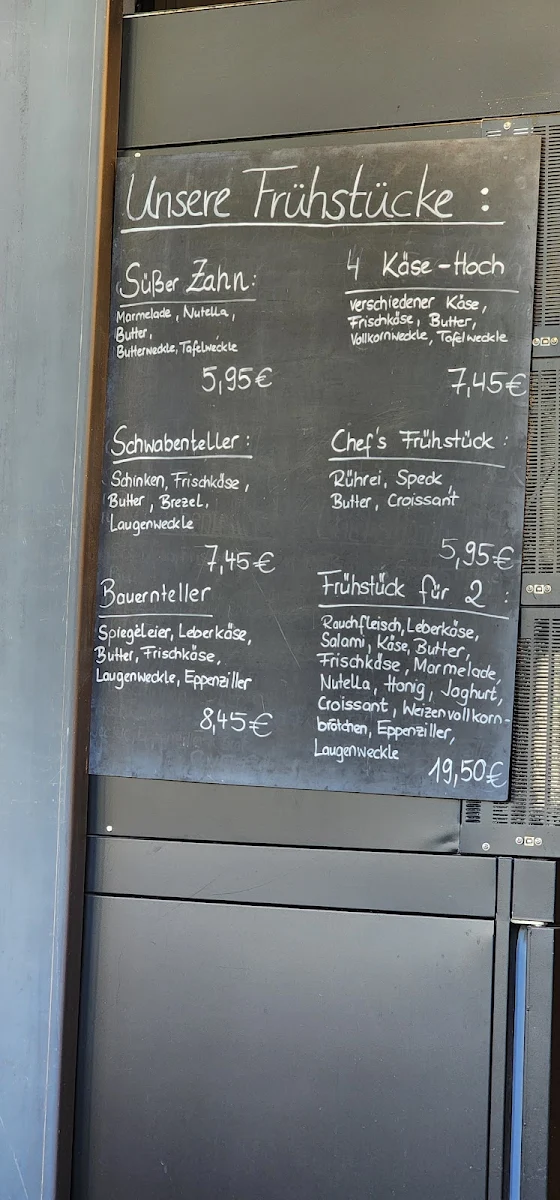 Unsere Frühstücke :
Süßer Zahn:
Marmelade, Nutella,
Butter,
Butterweckle, Tafelweckle
5,95€
4 Käse-Hoch
verschiedener Käse,
Frischkäse, Butter,
Vollkornweckle, Tafelweckle
7,45€
Schwabenteller:
Schinken, Frischkäse,
Butter, Brezel,
Laugenweckle
7,45€
Chef's Frühstück:
Rührei, Speck,
Butter, Croissant
5,95€
Bauernteller
Spiegeleier, Leberkäse,
Butter, Frischkäse,
Laugenweckle, Eppenziller
8,45€
Frühstück für 2 :
Rauchfleisch, Leberkäse,
Salami, Käse, Butter,
Frischkäse, Marmelade,
Nutella, Honig, Joghurt,
Croissant, Weizenvollkorn-
brötchen, Eppenziller,
Laugenweckle
19,50€